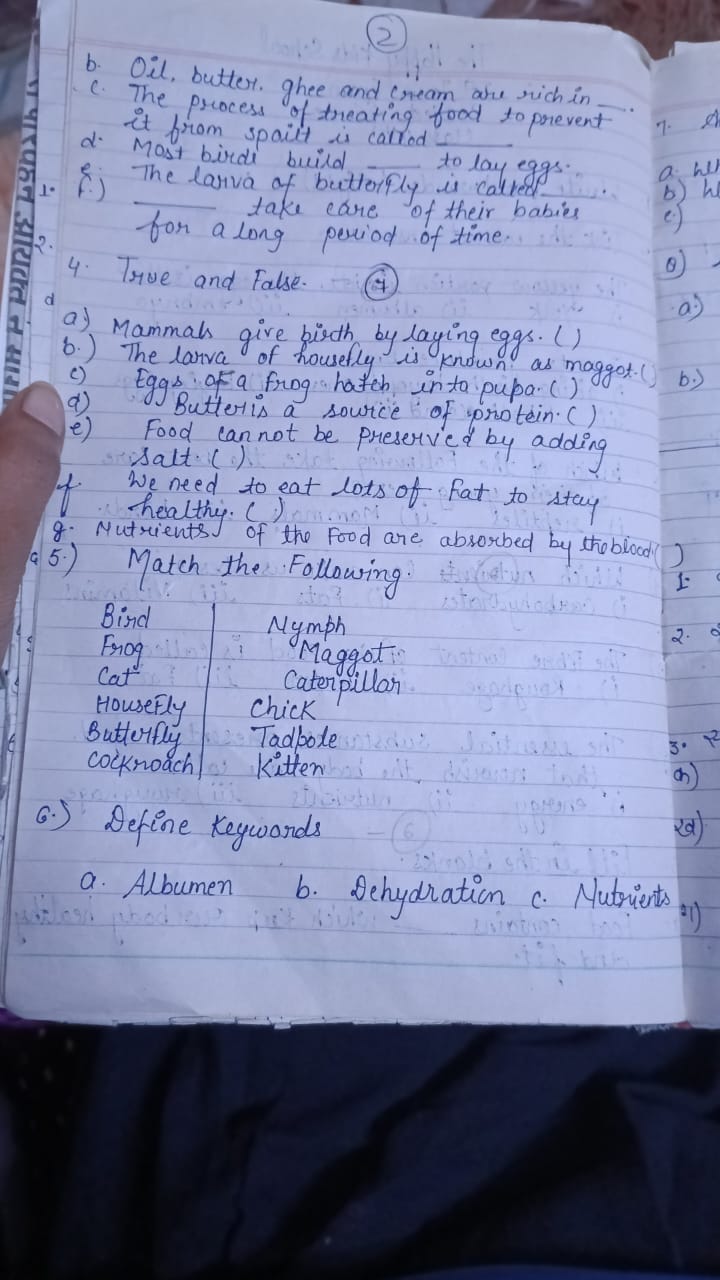 2
b. Oil, butter, ghee and cream are rich in ___.
c. The process of treating food to prevent
it from spoilt is called ___
d. Most birds build ___ to lay eggs.
e. The larva of butterfly is called ___.
f.) ___ take care of their babies
for a long period of time.
4. True and False. 7
a) Mammals give birth by laying eggs. ( )
b.) The larva of housefly is known as maggot. ( )
c) Eggs of a frog hatch into pupa. ( )
d) Butter is a source of protein. ( )
e) Food can not be preserved by adding
salt. ( )
f. We need to eat lots of fat to stay
healthy. ( )
g. Nutrients of the food are absorbed by the blood ( )
5.) Match the Following.
Bird Nymph
Frog Maggot
Cat Caterpillar
Housefly Chick
Butterfly Tadpole
Cockroach Kitten
6.) Define Keywords
a. Albumen b. Dehydration c. Nutrients
7.
a.
b)
c)
a)
b.)
1.
2.
3.